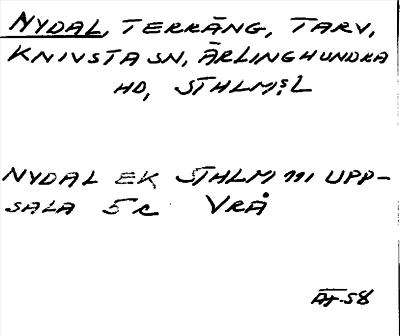 NYDAL, TERRÄNG, TARV,
KNIVSTA SN, ÄRLINGHUNDRA
HD, STHLMS L
NYDAL EK STHLM III UPP-
SALA 5 R VRÅ
ÄT-58